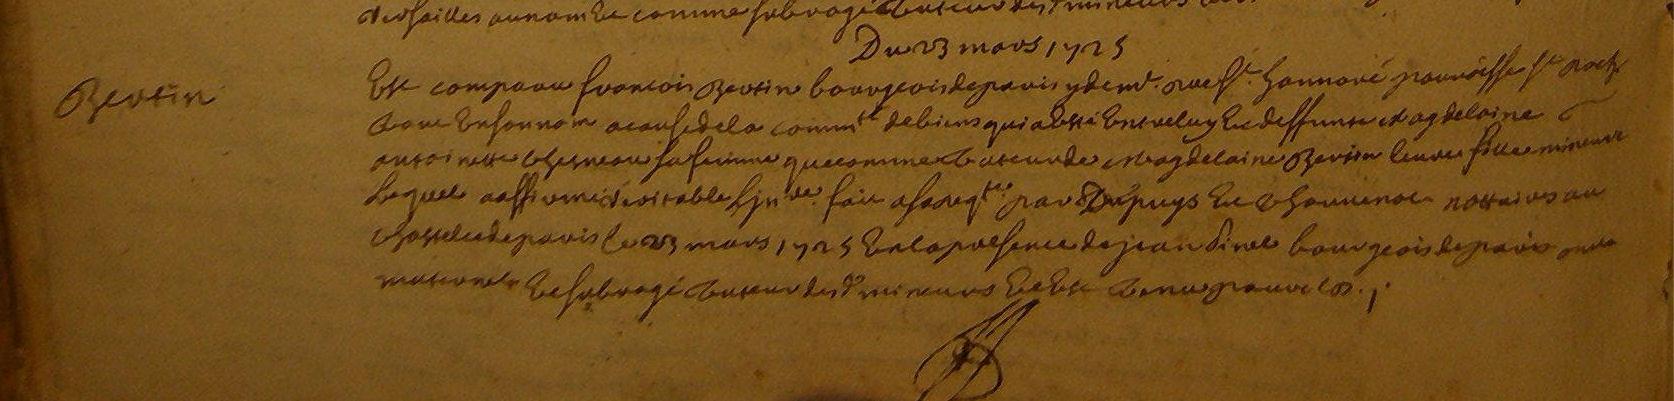 Versailles au nom et comme subrogé tuteur desd mineurs
Du 23 mars 1725
Bertin
Est comparu francois Bertin bourgeois de paris y demt. rue St. honnoré parroisse St Roch
tant en son nom a cause de la commté de biens qui a esté entre luy et deffunte Magdelaine
antoinette sa femme que comme tuteur de Magdelaine Bertin leur fille mineure
lequel a affirmé veritable linvre. fait a sa reqte par Dupuys et nottaires au
chastelet de paris le 23 mars 1725 en la presence de jean bourgeois de paris
maternel et subrogé tuteur desd mineurs et est tenu pour clos.